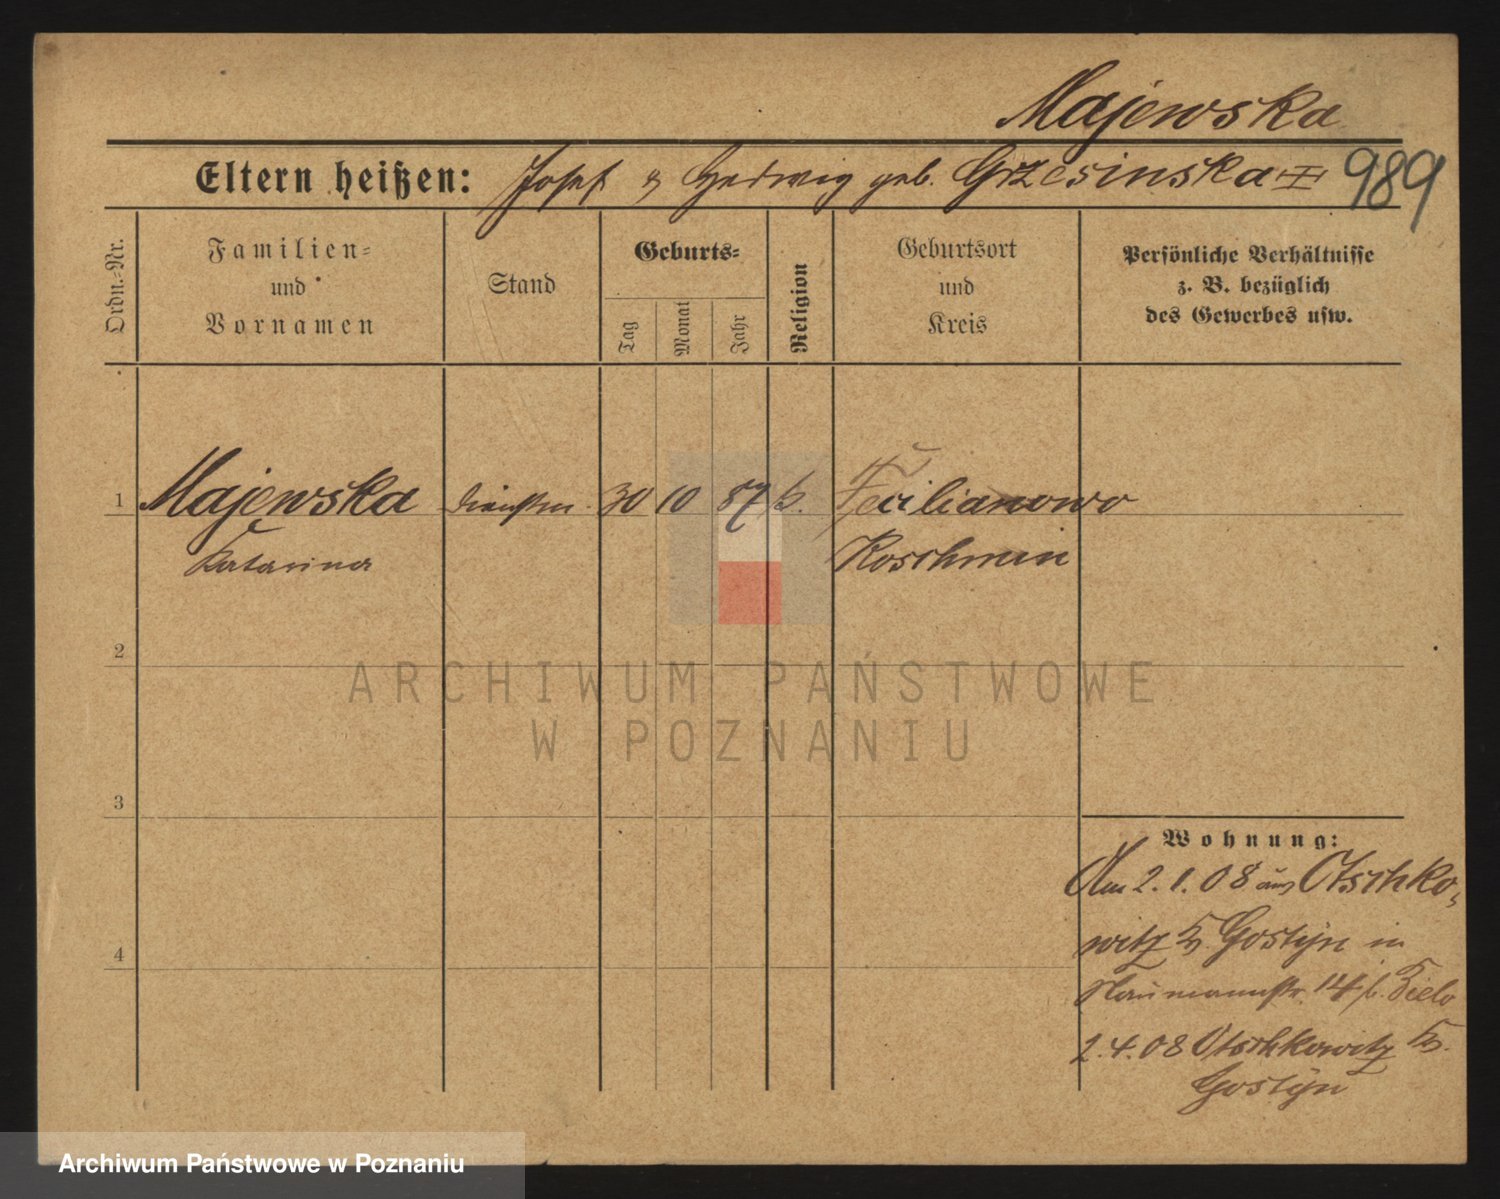 Majewska
Eltern heißen: Josef & Hedwig geb. Grzesinska 989
Ordn.-Nr.
Familien-
und
Vornamen
Stand
Geburts-
Tag
Monat
Jahr
Religion
Geburtsort
und
Kreis
Persönliche Verhältnisse
z. B. bezüglich
des Gewerbes usw.
1 Majewska 30 10 87 k. Cecilianowo
Katarina Koschmin
2
ARCHIWUM PAŃSTWOWE
W POZNANIU
3
Wohnung:
Am 2.1.08 aus Otschko-
witz Kr. Gostyn in
Naumannstr. 14 b.
4
2.4.08 Otschkowitz Kr.
Gostyn
Archiwum Państwowe w Poznaniu